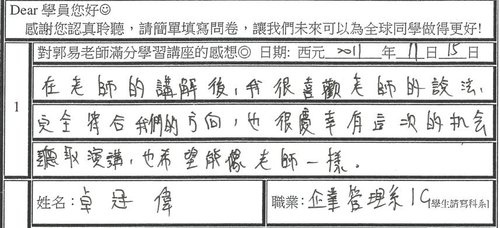 Dear 學員您好☺
感謝您認真聆聽，請簡單填寫問卷，讓我們未來可以為全球同學做得更好!
對郭易老師滿分學習講座的感想◎ 日期: 西元 2011 年 11 月 15 日
1
在老師的講解後，我很喜歡老師的說法，
完全符合我們的方向，也很慶幸有這次的机会
聽取演講，也希望能像老師一樣。
姓名: 卓冠偉
職業: 企業管理系1C [學生請寫科系]